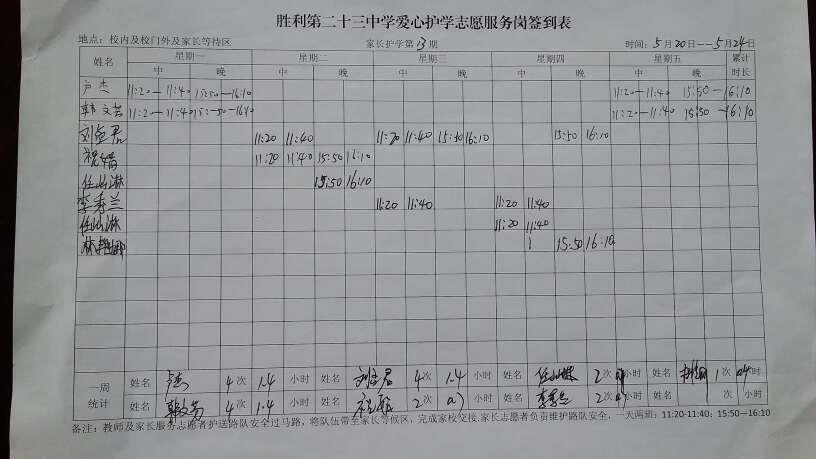 胜利第二十三中学爱心护学志愿服务岗签到表
地点：校内及校门外及家长等待区 家长护学第13期 时间：5月20日--5月24日
姓名 星期一 星期二 星期三 星期四 星期五 累计时长
中 晚 中 晚 中 晚 中 晚 中 晚
卢杰 11:20—11:40 15:50—16:10 11:20—11:40 15:50—16:10
韩文芸 11:20—11:40 15:50—16:10 11:20—11:40 15:50—16:10
刘金君 11:20 11:40 11:20 11:40 15:50 16:10 15:50 16:10
祝婧 11:20 11:40 15:50 16:10
任灿淋 15:50 16:10
李秀兰 11:20 11:40 11:20 11:40
任灿淋 11:20 11:40
林 15:50 16:10
一周统计 姓名 卢杰 4次 1.4小时 姓名 刘金君 4次 1.4小时 姓名 任灿淋 2次 小时 姓名 1次 小时
姓名 韩文芸 4次 1.4小时 姓名 祝婧 2次 小时 姓名 李秀兰 2次 小时 姓名 次 小时
备注：教师及家长服务志愿者护送路队安全过马路，将队伍带至家长等候区，完成家校交接.家长志愿者负责维护路队安全，一天两班：11:20-11:40；15:50—16:10